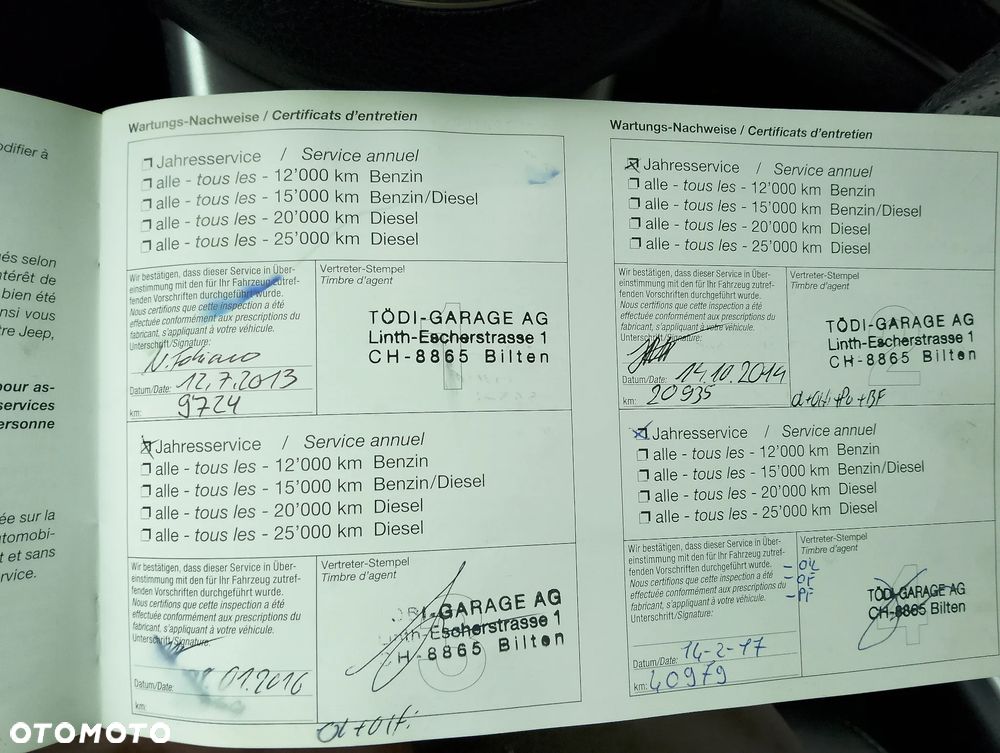 odifier à
és selon
ntérêt de
bien été
insi vous
tre Jeep,
pour as-
services
ersonne
ée sur la
utomobi-
t et sans
rvice.
Wartungs-Nachweise / Certificats d'entretien
Jahresservice / Service annuel
alle - tous les - 12'000 km Benzin
alle - tous les - 15'000 km Benzin/Diesel
alle - tous les - 20'000 km Diesel
alle - tous les - 25'000 km Diesel
Wir bestätigen, dass dieser Service in Über-
einstimmung mit den für Ihr Fahrzeug zutref-
fenden Vorschriften durchgeführt wurde.
Nous certifions que cette inspection a été
effectuée conformément aux prescriptions du
fabricant, s'appliquant à votre véhicule.
Unterschrift/Signature:
Datum/Date: 12.7.2013
km: 9724
Vertreter-Stempel
Timbre d'agent
1
TÖDI-GARAGE AG
Linth-Escherstrasse 1
CH-8865 Bilten
Jahresservice / Service annuel
alle - tous les - 12'000 km Benzin
alle - tous les - 15'000 km Benzin/Diesel
alle - tous les - 20'000 km Diesel
alle - tous les - 25'000 km Diesel
Wir bestätigen, dass dieser Service in Über-
einstimmung mit den für Ihr Fahrzeug zutref-
fenden Vorschriften durchgeführt wurde.
Nous certifions que cette inspection a été
effectuée conformément aux prescriptions du
fabricant, s'appliquant à votre véhicule.
Unterschrift/Signature:
Datum/Date: 01.2016
km:
Vertreter-Stempel
Timbre d'agent
I-GARAGE AG
Linth-Escherstrasse 1
CH-8865 Bilten
Wartungs-Nachweise / Certificats d'entretien
Jahresservice / Service annuel
alle - tous les - 12'000 km Benzin
alle - tous les - 15'000 km Benzin/Diesel
alle - tous les - 20'000 km Diesel
alle - tous les - 25'000 km Diesel
Wir bestätigen, dass dieser Service in Über-
einstimmung mit den für Ihr Fahrzeug zutref-
fenden Vorschriften durchgeführt wurde.
Nous certifions que cette inspection a été
effectuée conformément aux prescriptions du
fabricant, s'appliquant à votre véhicule.
Unterschrift/Signature:
Datum/Date: 14.10.2014
km: 20935
Vertreter-Stempel
Timbre d'agent
2
TÖDI-GARAGE AG
Linth-Escherstrasse 1
CH-8865 Bilten
Jahresservice / Service annuel
alle - tous les - 12'000 km Benzin
alle - tous les - 15'000 km Benzin/Diesel
alle - tous les - 20'000 km Diesel
alle - tous les - 25'000 km Diesel
Wir bestätigen, dass dieser Service in Über-
einstimmung mit den für Ihr Fahrzeug zutref-
fenden Vorschriften durchgeführt wurde.
Nous certifions que cette inspection a été
effectuée conformément aux prescriptions du
fabricant, s'appliquant à votre véhicule.
Unterschrift/Signature:
Datum/Date: 14-2-17
km: 40979
Vertreter-Stempel
Timbre d'agent
- ÖL
- OF
- PF
4
TÖDI-GARAGE AG
CH-8865 Bilten
OTOMOTO